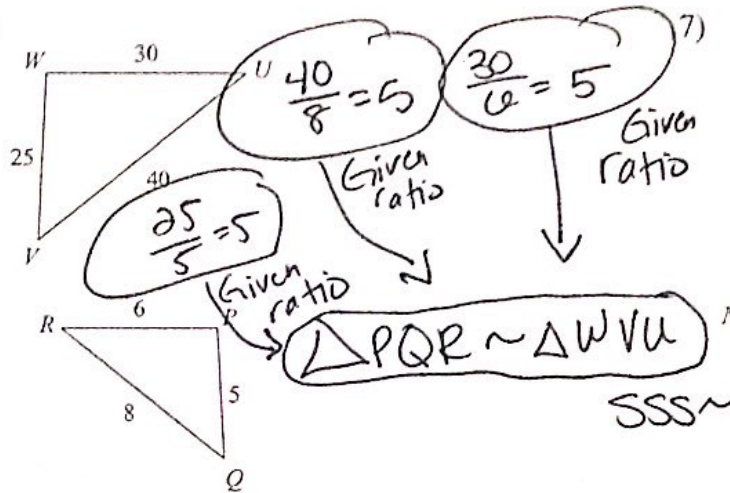 W 30 U
25
40
V
40/8 = 5
Given
ratio
30/6 = 5
Given
ratio
7)
25/5 = 5
Given
ratio
R 6 P
8 5
Q
△PQR ~ △WVU
SSS~